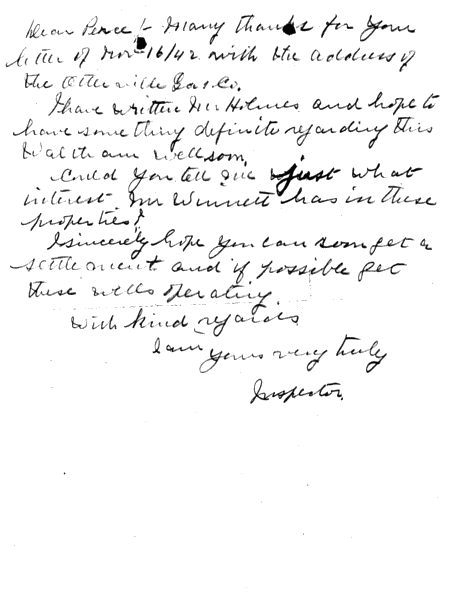 Dear Perce :- Many thanks for your
letter of Nov. 16/42 with the address of
the Otterville Gas Co.
I have written Mr Holmes and hope to
have something definite regarding this
Waltham well soon.
Could you tell me just what
interest Mr Winnett has in these
properties?
I sincerely hope you can soon get a
settlement and if possible get
these wells operating.
With kind regards
I am yours very truly
Inspector.